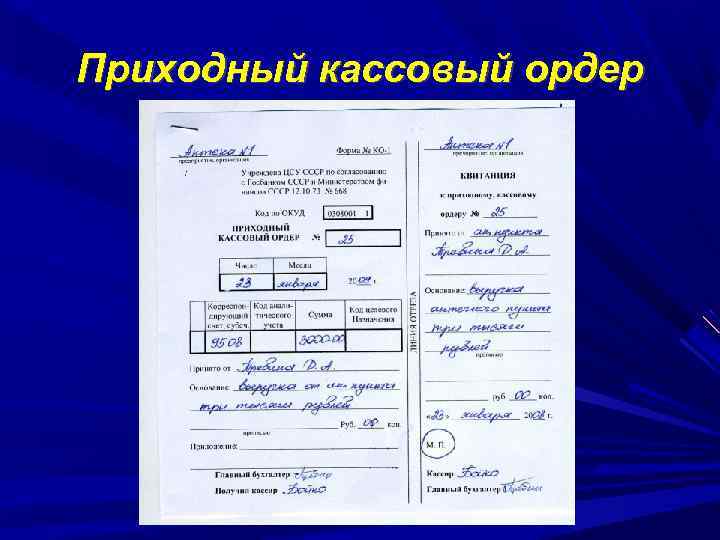 Приходный кассовый ордер
Аптека №1
предприятие, организация
Форма № КО-1
Учреждена ЦСУ СССР по согласованию
с Госбанком СССР и Министерством фи
нансов СССР 12.10.73 № 668
Код по ОКУД 0308001 1
ПРИХОДНЫЙ
КАССОВЫЙ ОРДЕР № 25
Число Месяц
23 января
Корреспон-
дирующий
счет, субсч.
Код анали-
тического
учета
Сумма
Код целевого
Назначения
3000-00
Принято от Д.А.
Основание выручка от ап. пункта
три тысячи рублей
прописью
Руб. 00 коп.
Приложение:
Главный бухгалтер
Получил кассир Бойко
ЛИНИЯ ОТРЕЗА
Аптека №1
предприятие, организация
КВИТАНЦИЯ
к приходному, кассовому
ордеру № 25
Принято от ап. пункта
Д.А.
Основание: выручка
аптечного пункта
три тысячи
рублей
прописью
руб 00 коп.
«23» января 2008 г.
М. П.
Кассир Бойко
Главный бухгалтер